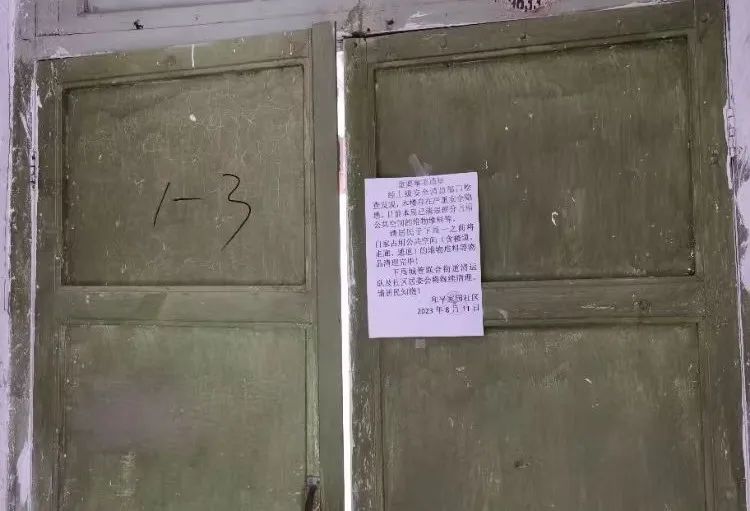 1-3
经上级安全消防部门检
查发现，本楼存在严重安全隐
患，目前本周已清理部分占用
公共空间的堆物堆料等。
请居民于下周一之前将
自家占用公共空间（含楼道、
走廊、通道）的堆物堆料等物
品清理完毕！
下周城管联合街道清运
队及社区居委会将继续清理，
请居民知晓！
社区
2023年8月11日